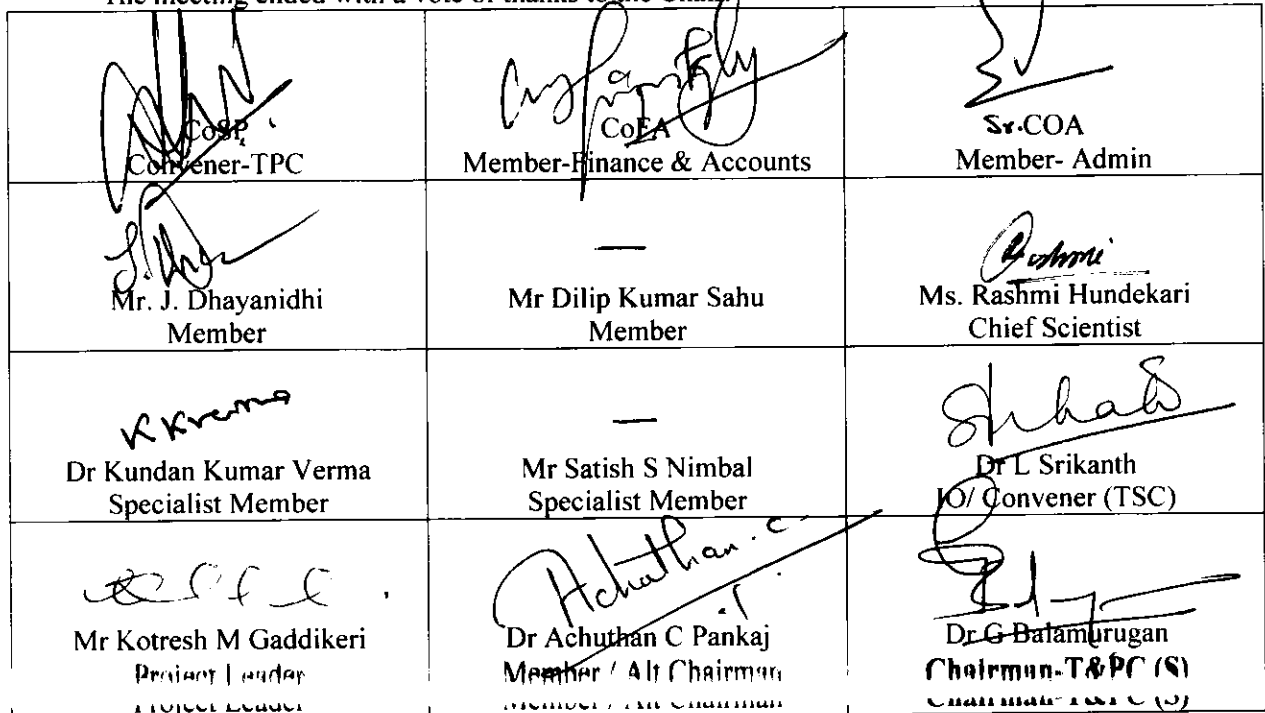 The meeting ended with a vote of thanks to the Chair.
CoSP
Convener-TPC
CoFA
Member-Finance & Accounts
Sr. COA
Member- Admin
Mr. J. Dhayanidhi
Member
—
Mr Dilip Kumar Sahu
Member
Rashmi
Ms. Rashmi Hundekari
Chief Scientist
KKverma
Dr Kundan Kumar Verma
Specialist Member
—
Mr Satish S Nimbal
Specialist Member
Dr L Srikanth
IO/ Convener (TSC)
Mr Kotresh M Gaddikeri
Project Leader
Achuthan. C
Dr Achuthan C Pankaj
Member / Alt Chairman
Dr G Balamurugan
Chairman-T&PC (S)